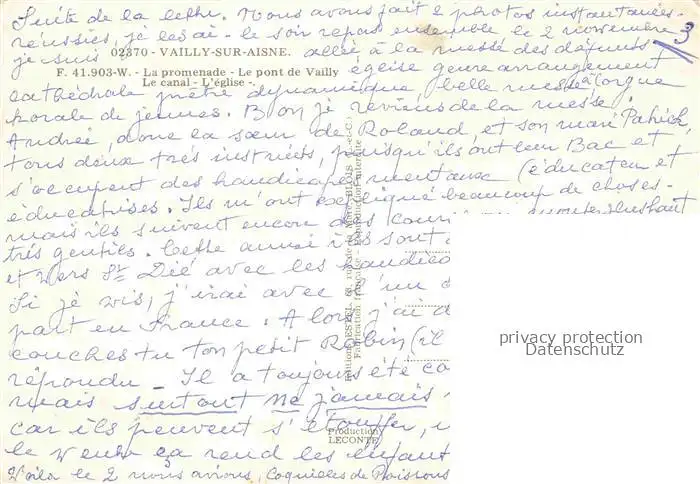 Suite de la lettre. Nous avons fait 2 photos instantanées
réussies, je les ai - le soir repas ensemble le 2 novembre
3
je suis allée à la messe des défunts
02370 - VAILLY-SUR-AISNE.
F. 41.903-W. - La promenade - Le pont de Vailly
Le canal - L'église -.
église genre arrangement
cathédrale prêtre dynamique, belle messe à l'orgue
korale de jeunes. Bon je reviens de la messe.
Andrée, donc la sœur de Roland, et son mari Patrick
tous deux très instruits, puisqu'ils ont leur Bac et
s'occupent des handicapés mentaux (éducateur et
éducatrises. Ils m'ont expliqué beaucoup de choses -
mais ils suivent encore des cours
très gentils. Cette année ils sont
et vers St Dié avec les handica
Si je vis, j'irai avec l'un
part en France. Alors j'ai
couches tu ton petit Robin (il
répondu - Il a toujours été co
mais surtout ne jamais
car ils peuvent s'étouffer,
le ventre ça rend les enfant
Voila le 2 nous avions, Coquilles de Poissons
Editions ESTEL
Fabrication française - Reproduction interdite
Production
LECONTE
privacy protection
Datenschutz